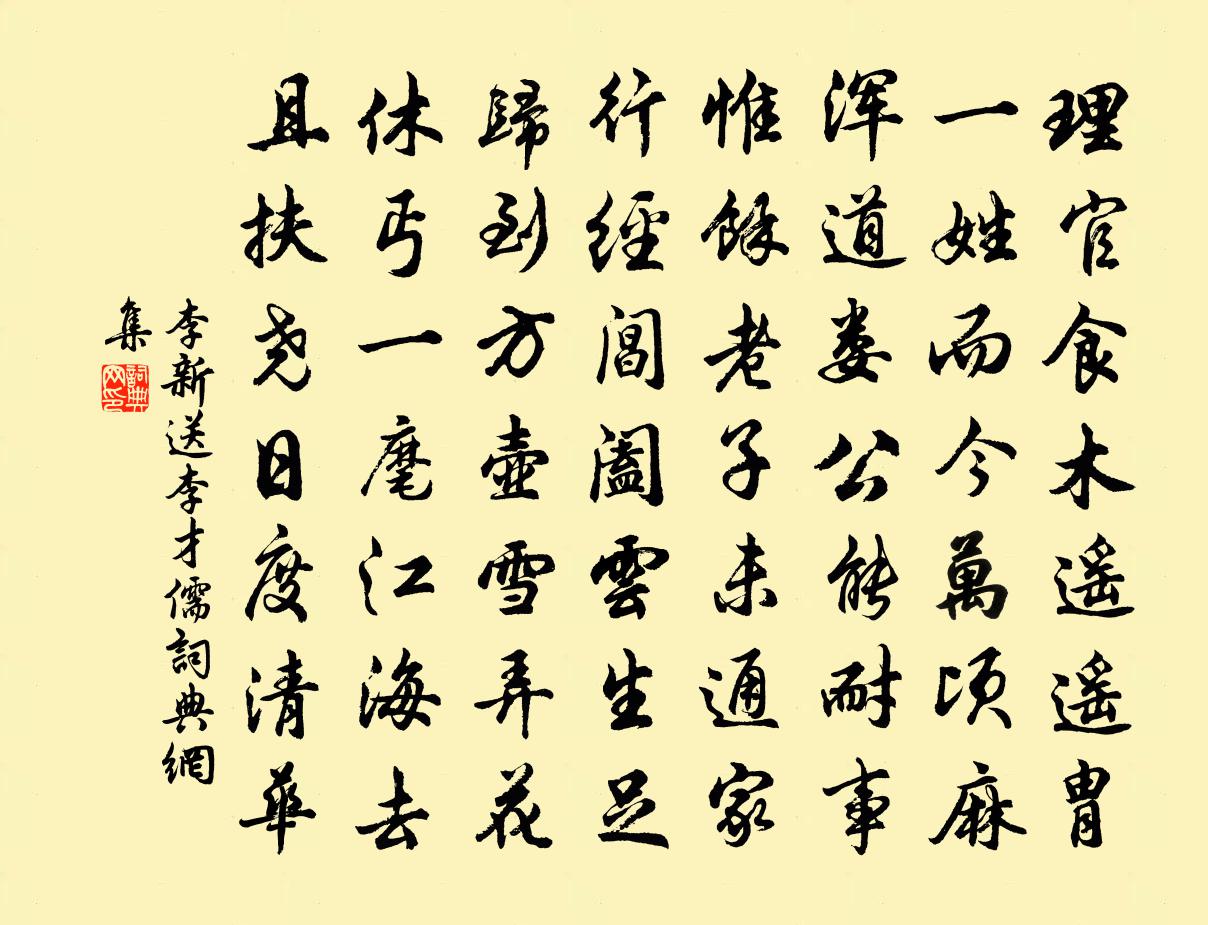 理官食木遥遥胄
一姓而今萬頃麻
浑道娄公能耐事
惟餘老子未通家
行經閶闔雲生足
歸到方壺雪弄花
休丐一麾江海去
且扶尧日度清華
李新送李才儒詞典網
集
詞典网印